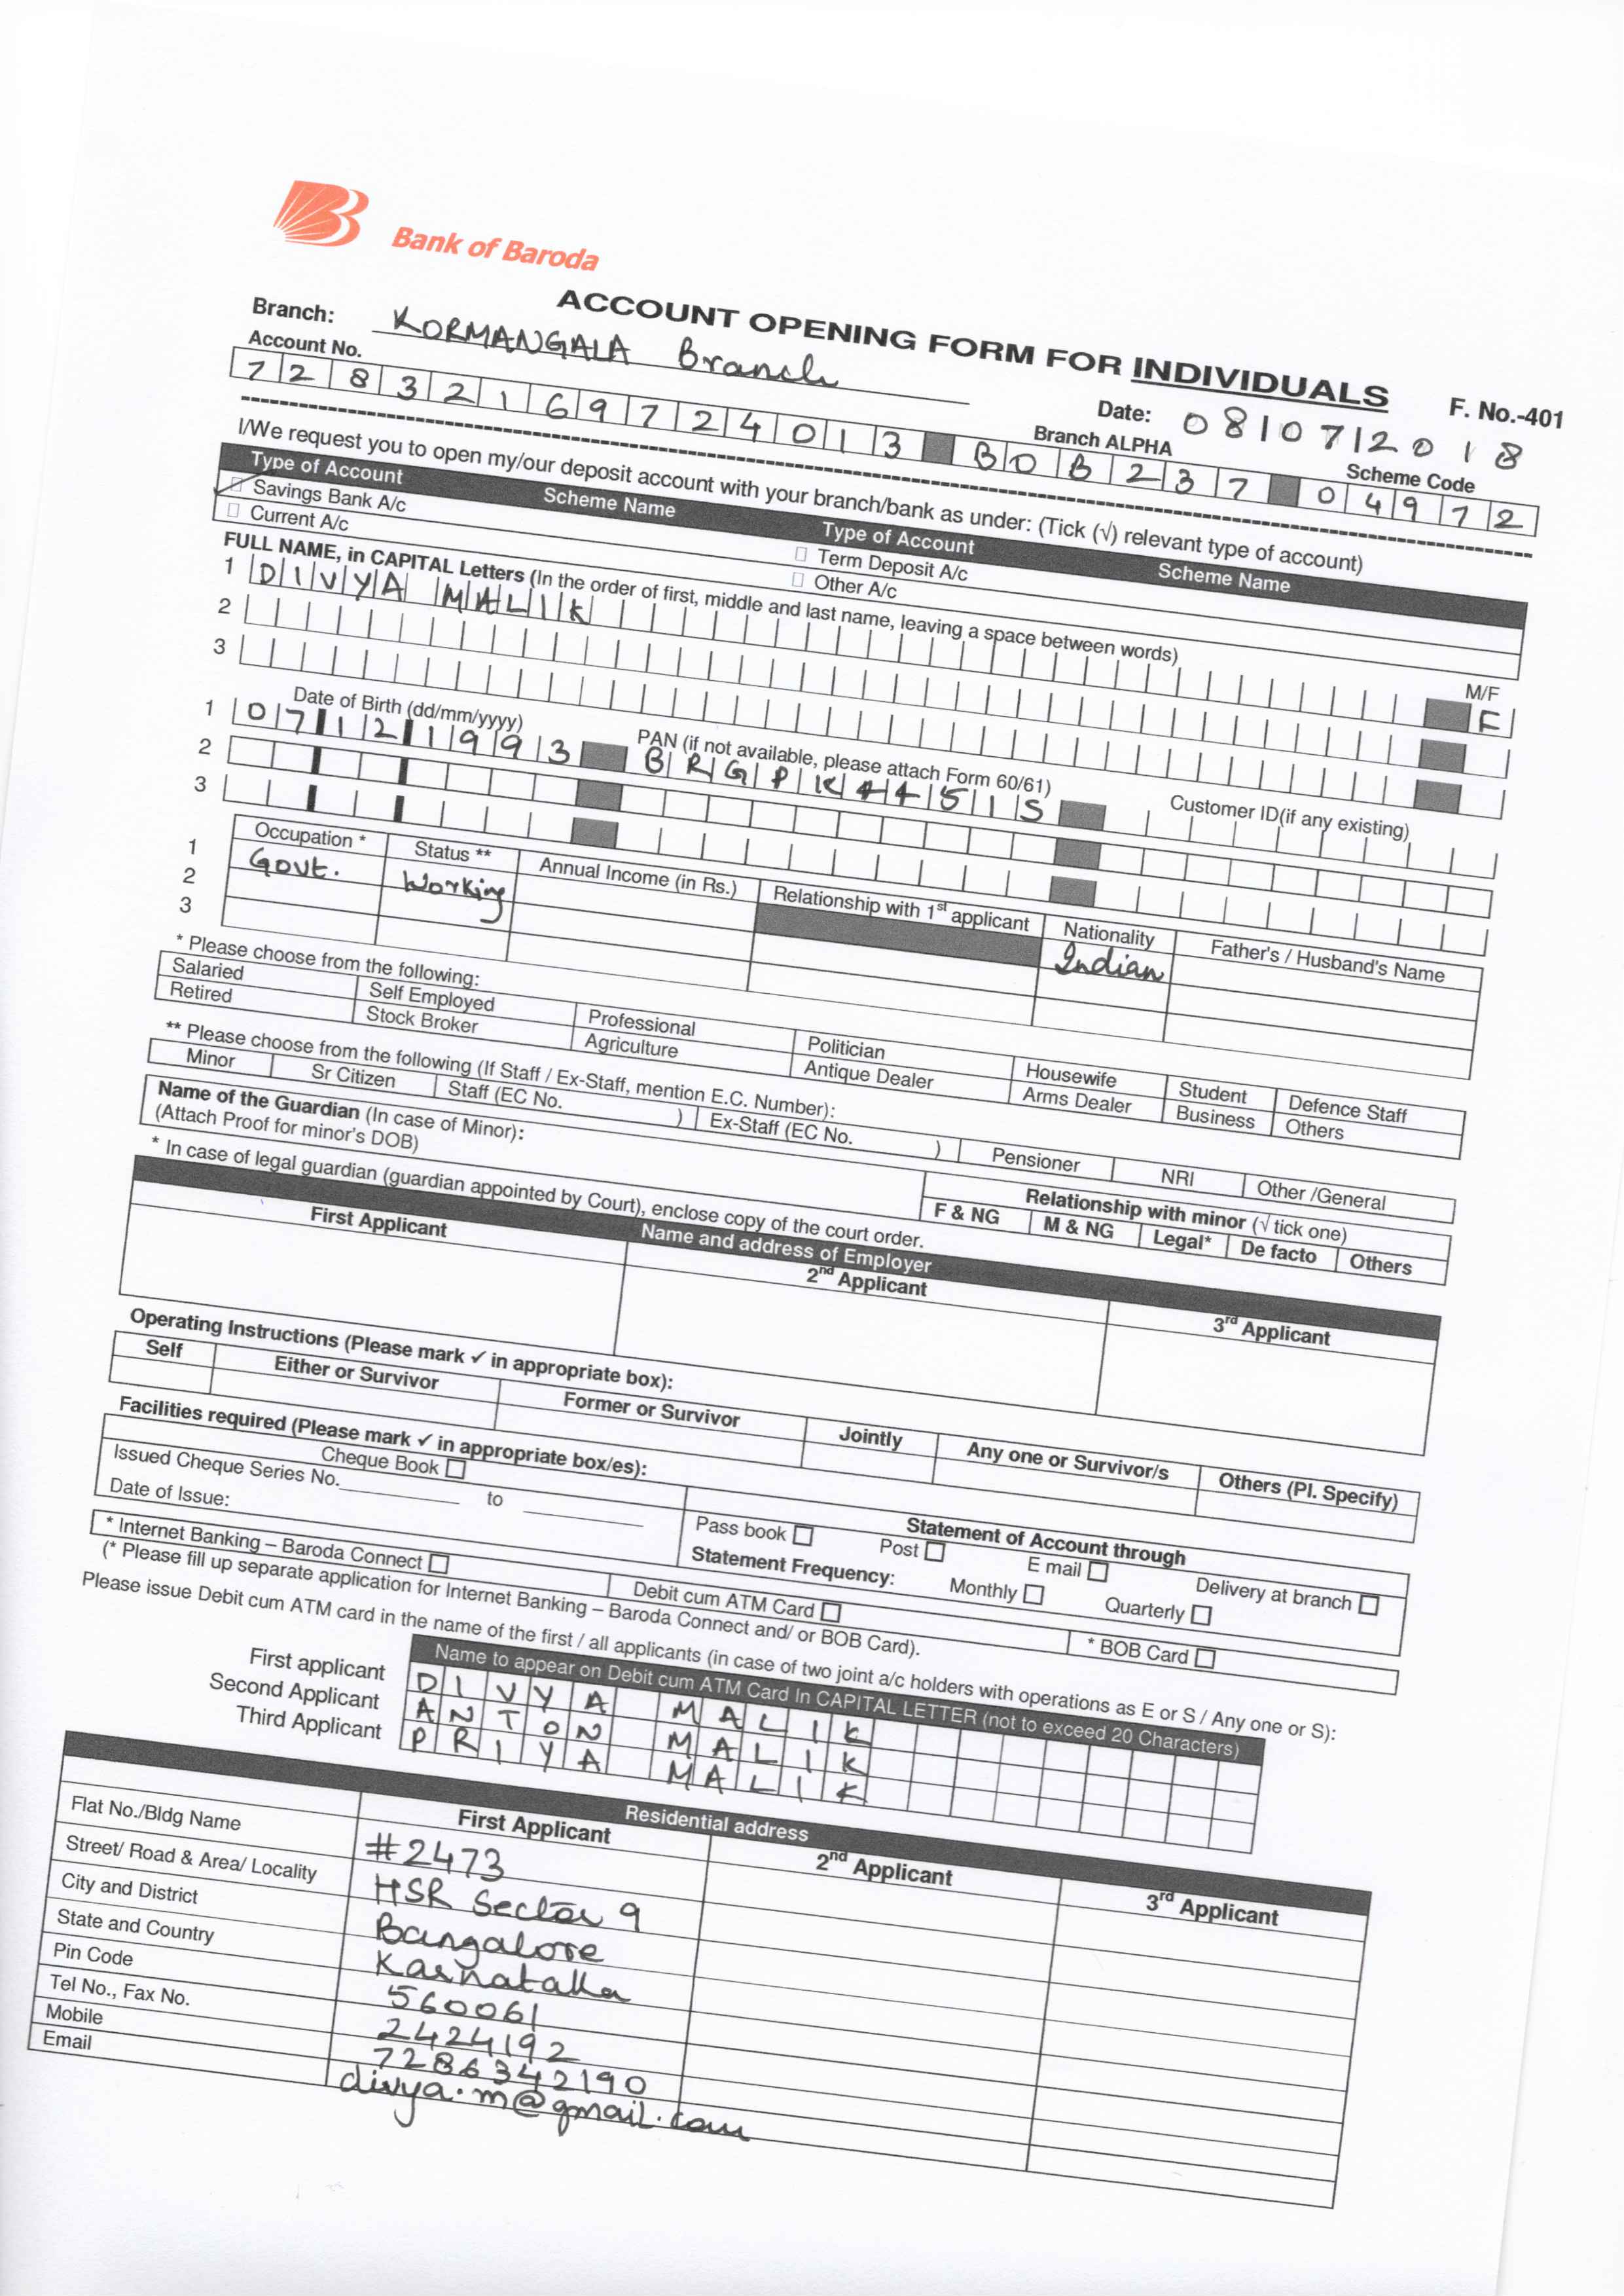 Bank of Baroda
ACCOUNT OPENING FORM FOR INDIVIDUALS F. No.-401
Branch: KORMANGALA Branch
Date: 08/07/2018
Account No. Branch ALPHA Scheme Code
72832169724013 BOB237 04972
I/We request you to open my/our deposit account with your branch/bank as under: (Tick (√) relevant type of account)
Type of Account Scheme Name Type of Account Scheme Name
Savings Bank A/c Term Deposit A/c
Current A/c Other A/c
FULL NAME, in CAPITAL Letters (In the order of first, middle and last name, leaving a space between words) M/F
1 DIVYA MALIK F
2
3
Date of Birth (dd/mm/yyyy) PAN (if not available, please attach Form 60/61) Customer ID(if any existing)
1 07121993 BRGPK4451S
2
3
Occupation * Status ** Annual Income (in Rs.) Relationship with 1st applicant Nationality Father's / Husband's Name
1 Govt. Working Indian
2
3
* Please choose from the following:
Salaried Self Employed Professional Politician Housewife Student Defence Staff
Retired Stock Broker Agriculture Antique Dealer Arms Dealer Business Others
** Please choose from the following (If Staff / Ex-Staff, mention E.C. Number):
Minor Sr Citizen Staff (EC No. ) Ex-Staff (EC No. ) Pensioner NRI Other /General
Name of the Guardian (In case of Minor): Relationship with minor (√ tick one)
(Attach Proof for minor's DOB) F & NG M & NG Legal* De facto Others
* In case of legal guardian (guardian appointed by Court), enclose copy of the court order.
Name and address of Employer
First Applicant 2nd Applicant 3rd Applicant
Operating Instructions (Please mark ✓ in appropriate box):
Self Either or Survivor Former or Survivor Jointly Any one or Survivor/s Others (Pl. Specify)
Facilities required (Please mark ✓ in appropriate box/es):
Cheque Book Statement of Account through
Issued Cheque Series No. to Pass book Post E mail Delivery at branch
Date of Issue: Statement Frequency: Monthly Quarterly
* Internet Banking – Baroda Connect Debit cum ATM Card * BOB Card
(* Please fill up separate application for Internet Banking – Baroda Connect and/ or BOB Card).
Please issue Debit cum ATM card in the name of the first / all applicants (in case of two joint a/c holders with operations as E or S / Any one or S):
Name to appear on Debit cum ATM Card In CAPITAL LETTER (not to exceed 20 Characters)
First applicant DIVYA MALIK
Second Applicant ANTON MALIK
Third Applicant PRIYA MALIK
Residential address
First Applicant 2nd Applicant 3rd Applicant
Flat No./Bldg Name #2473
Street/ Road & Area/ Locality HSR Sector 9
City and District Bangalore
State and Country Karnataka
Pin Code 560061
Tel No., Fax No. 2424192
Mobile 7286342190
Email divya.m@gmail.com